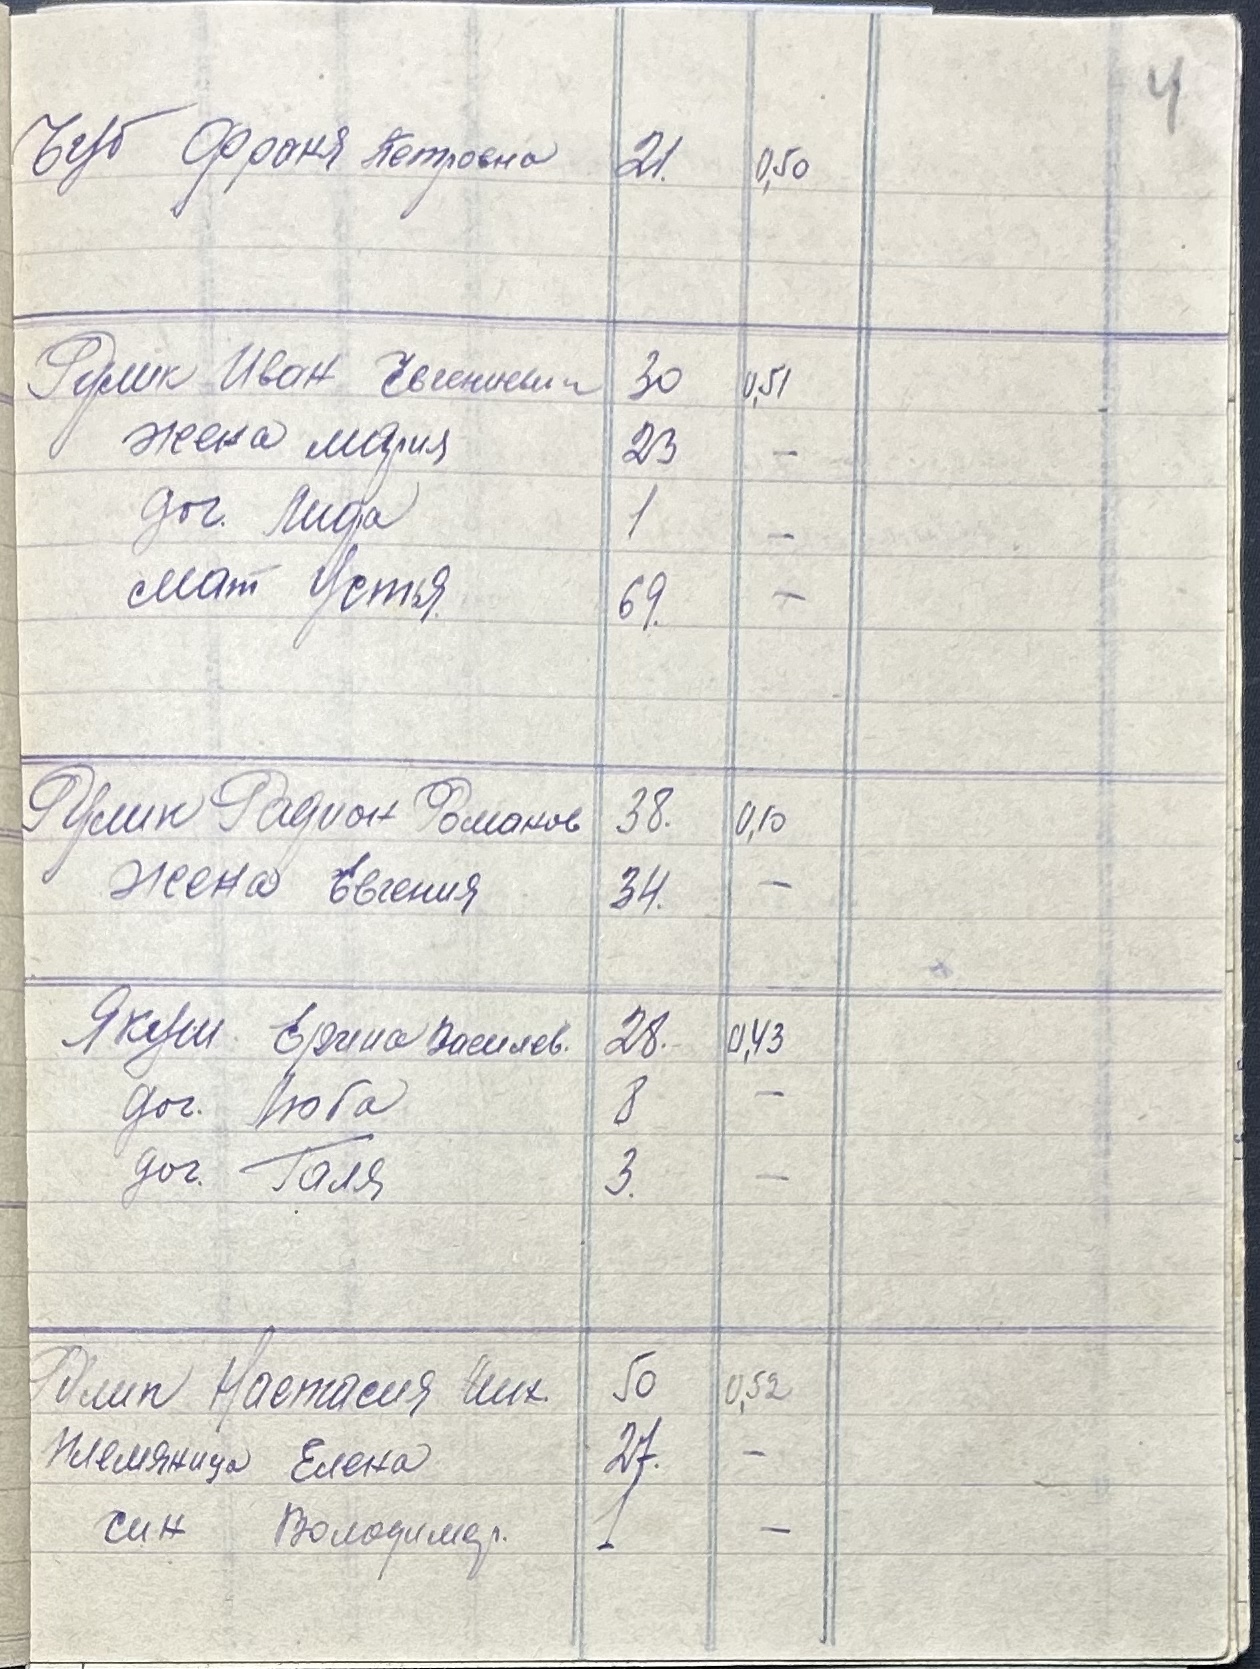 4
Чуб Фроня Петровна 21. 0,50
Рулик Иван Евгениевич 30 0,51
жена Мария 23 –
доч. Лида 1 –
мат Устья 69. –
Рулик Радион Романов 38. 0,10
жена Евгения 34. –
Якуш Василев. 28. 0,43
доч. Люба 8 –
доч. Галя 3. –
Рулик Настасия 50 0,52
племяница Елена 27. –
син Володимер. 1 –